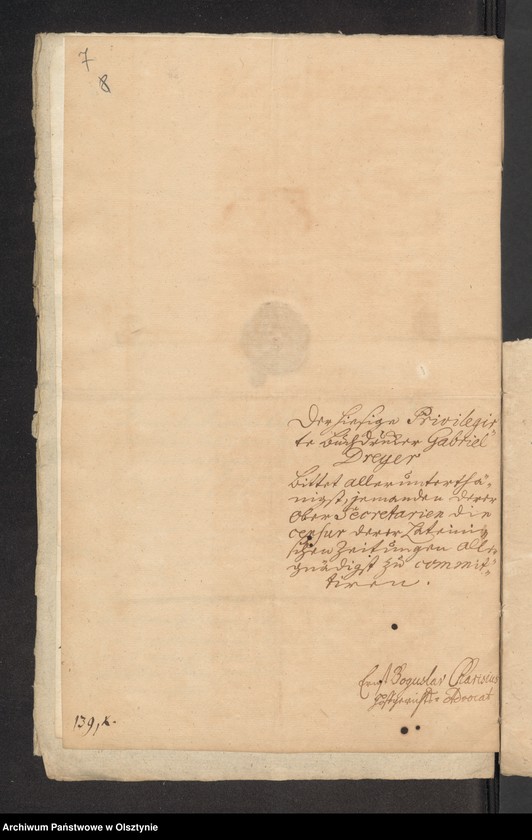 7
8
Der hiesige Privilegir
te Buchdruker Gabriel
Dreyer
bittet allerunterthä-
nigst, jemanden derer
Ober Secretarien die
censur derer Lateini
schen Zeitungen aller
gnädigst zu commit-
tiren.
Ernst Boguslav
Hofgerichts Advocat
139,
Archiwum Państwowe w Olsztynie